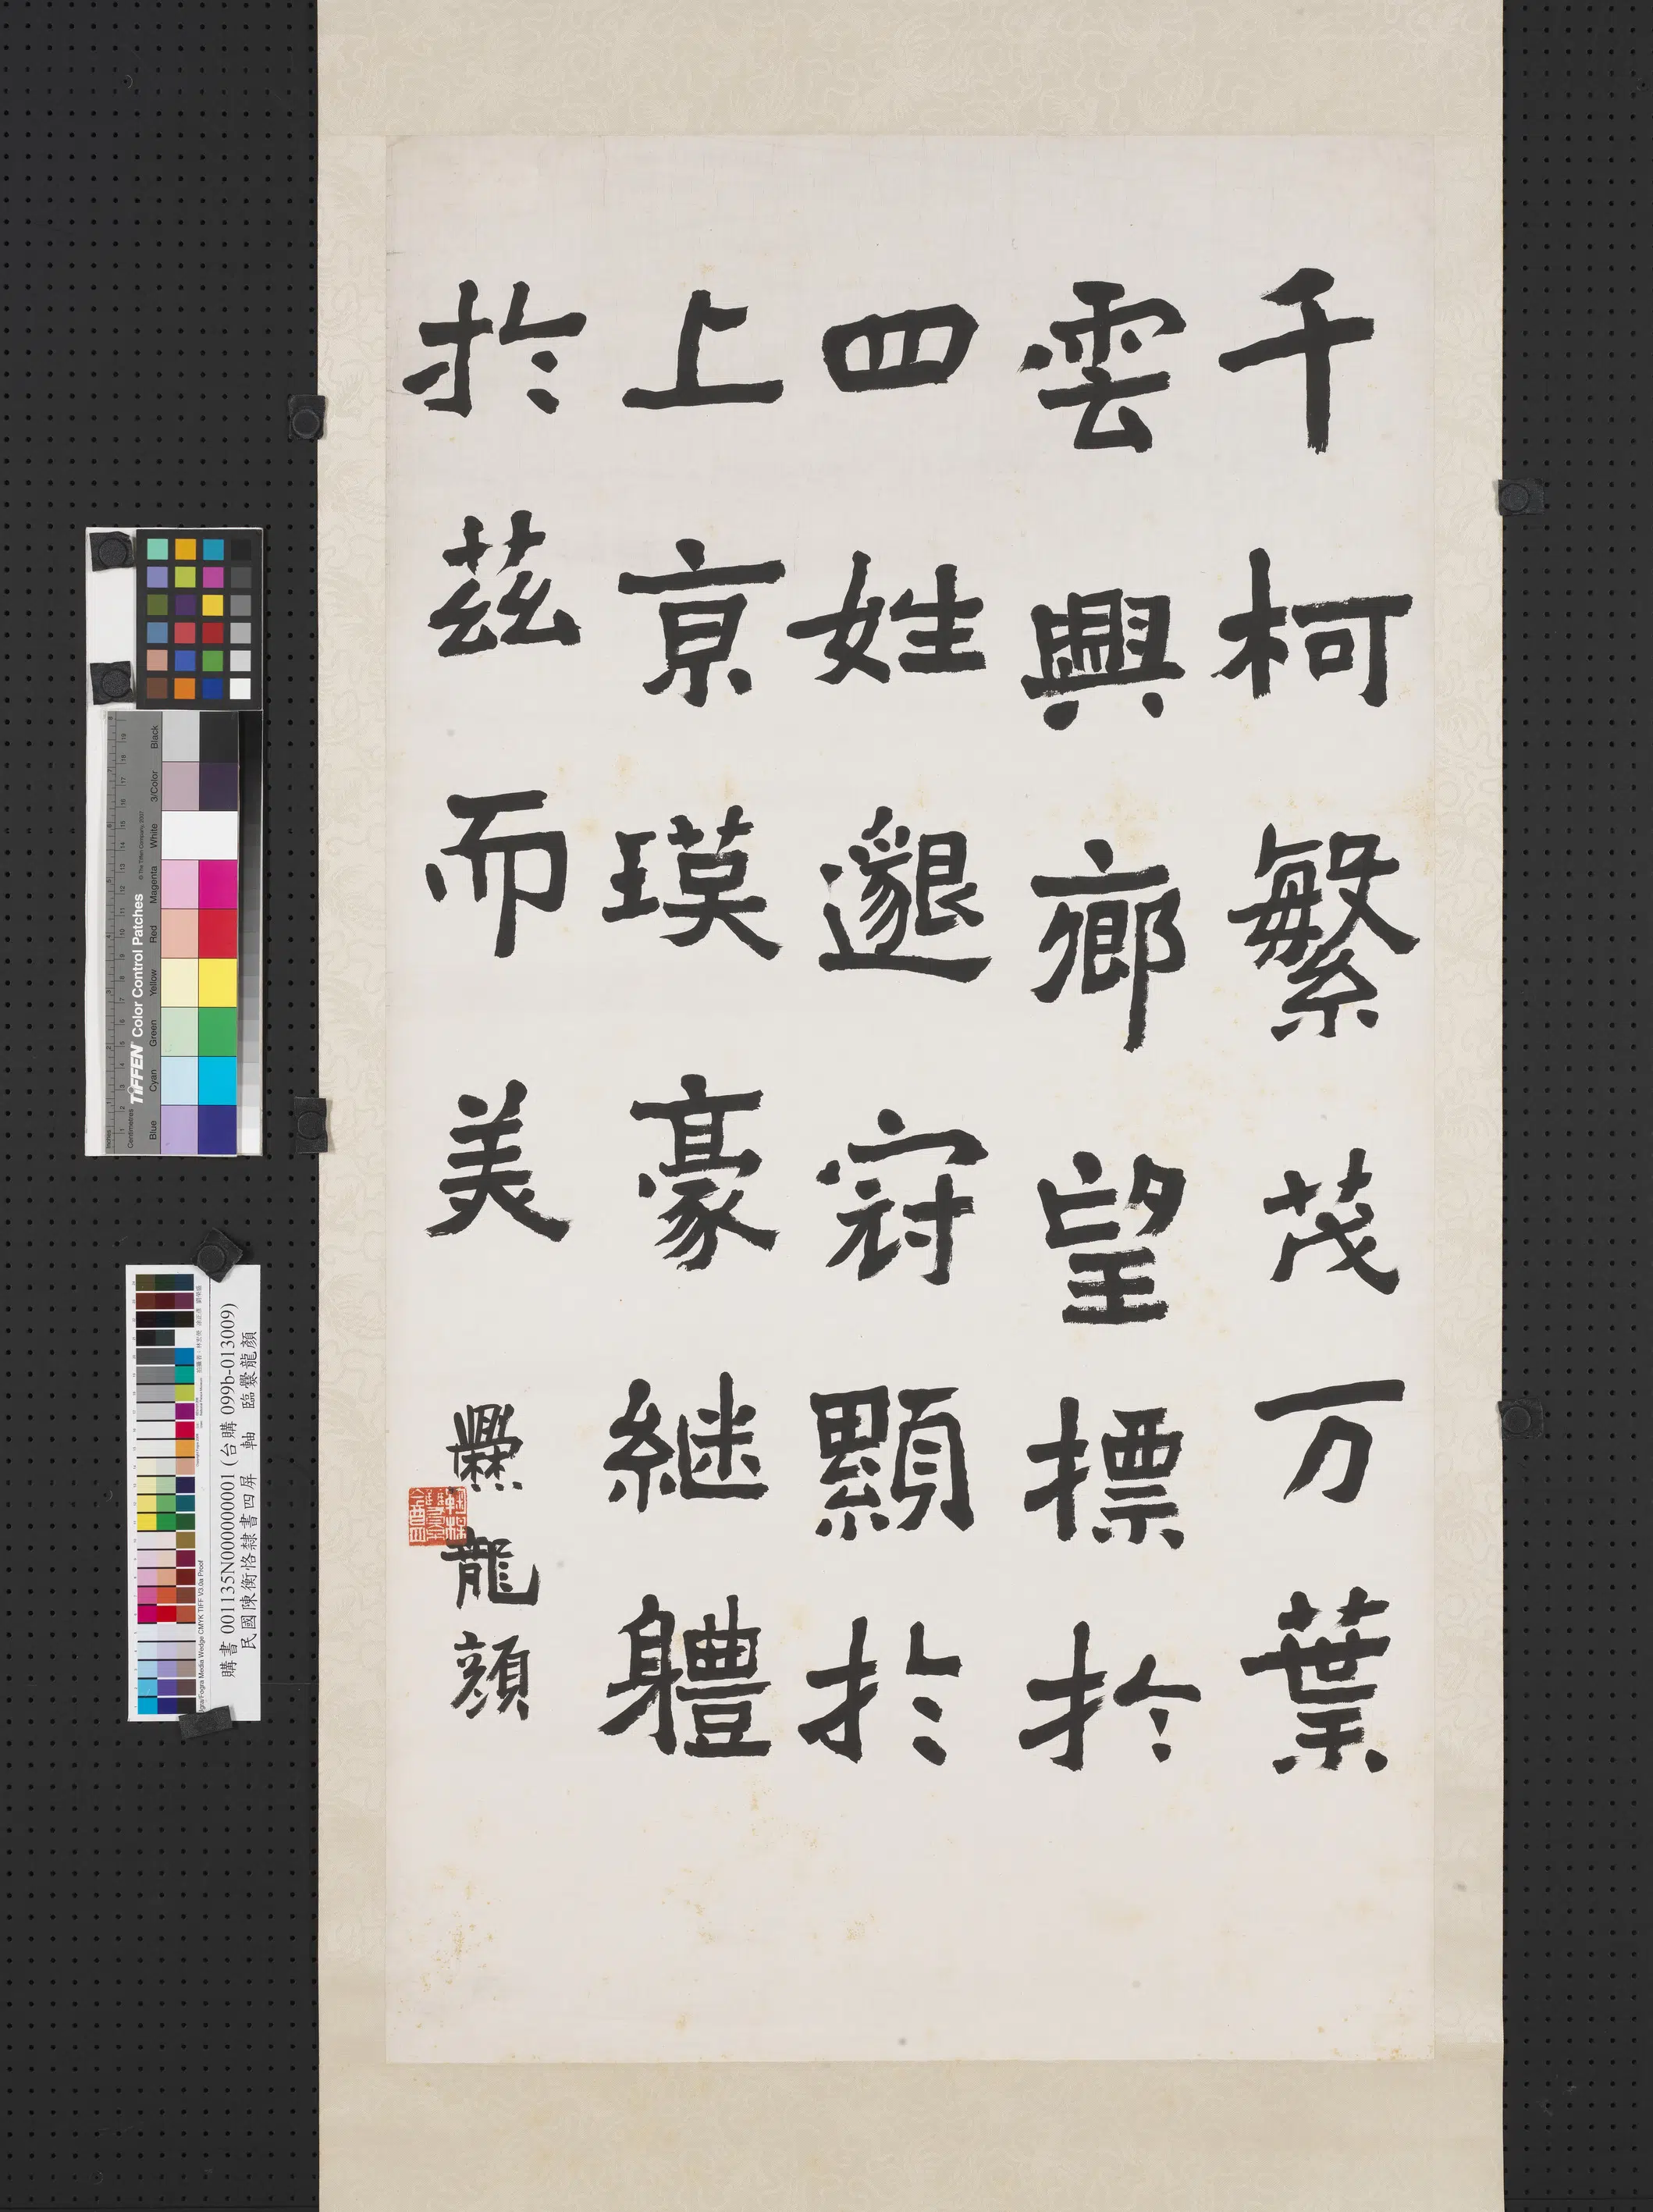 千柯繁茂万葉
雲興鄉望摽於
四姓邈冠顯於
上京瑛豪継軆
於茲而美
爨龍顏
TIFFEN Color Control Patches
© The Tiffen Company, 2007
Centimetres
Inches
Blue Cyan Green Yellow Red Magenta White 3/Color Black
購書 001135N000000001 (台購 099b-013009)
民國陳衡恪隸書四屏 軸 臨爨龍顏